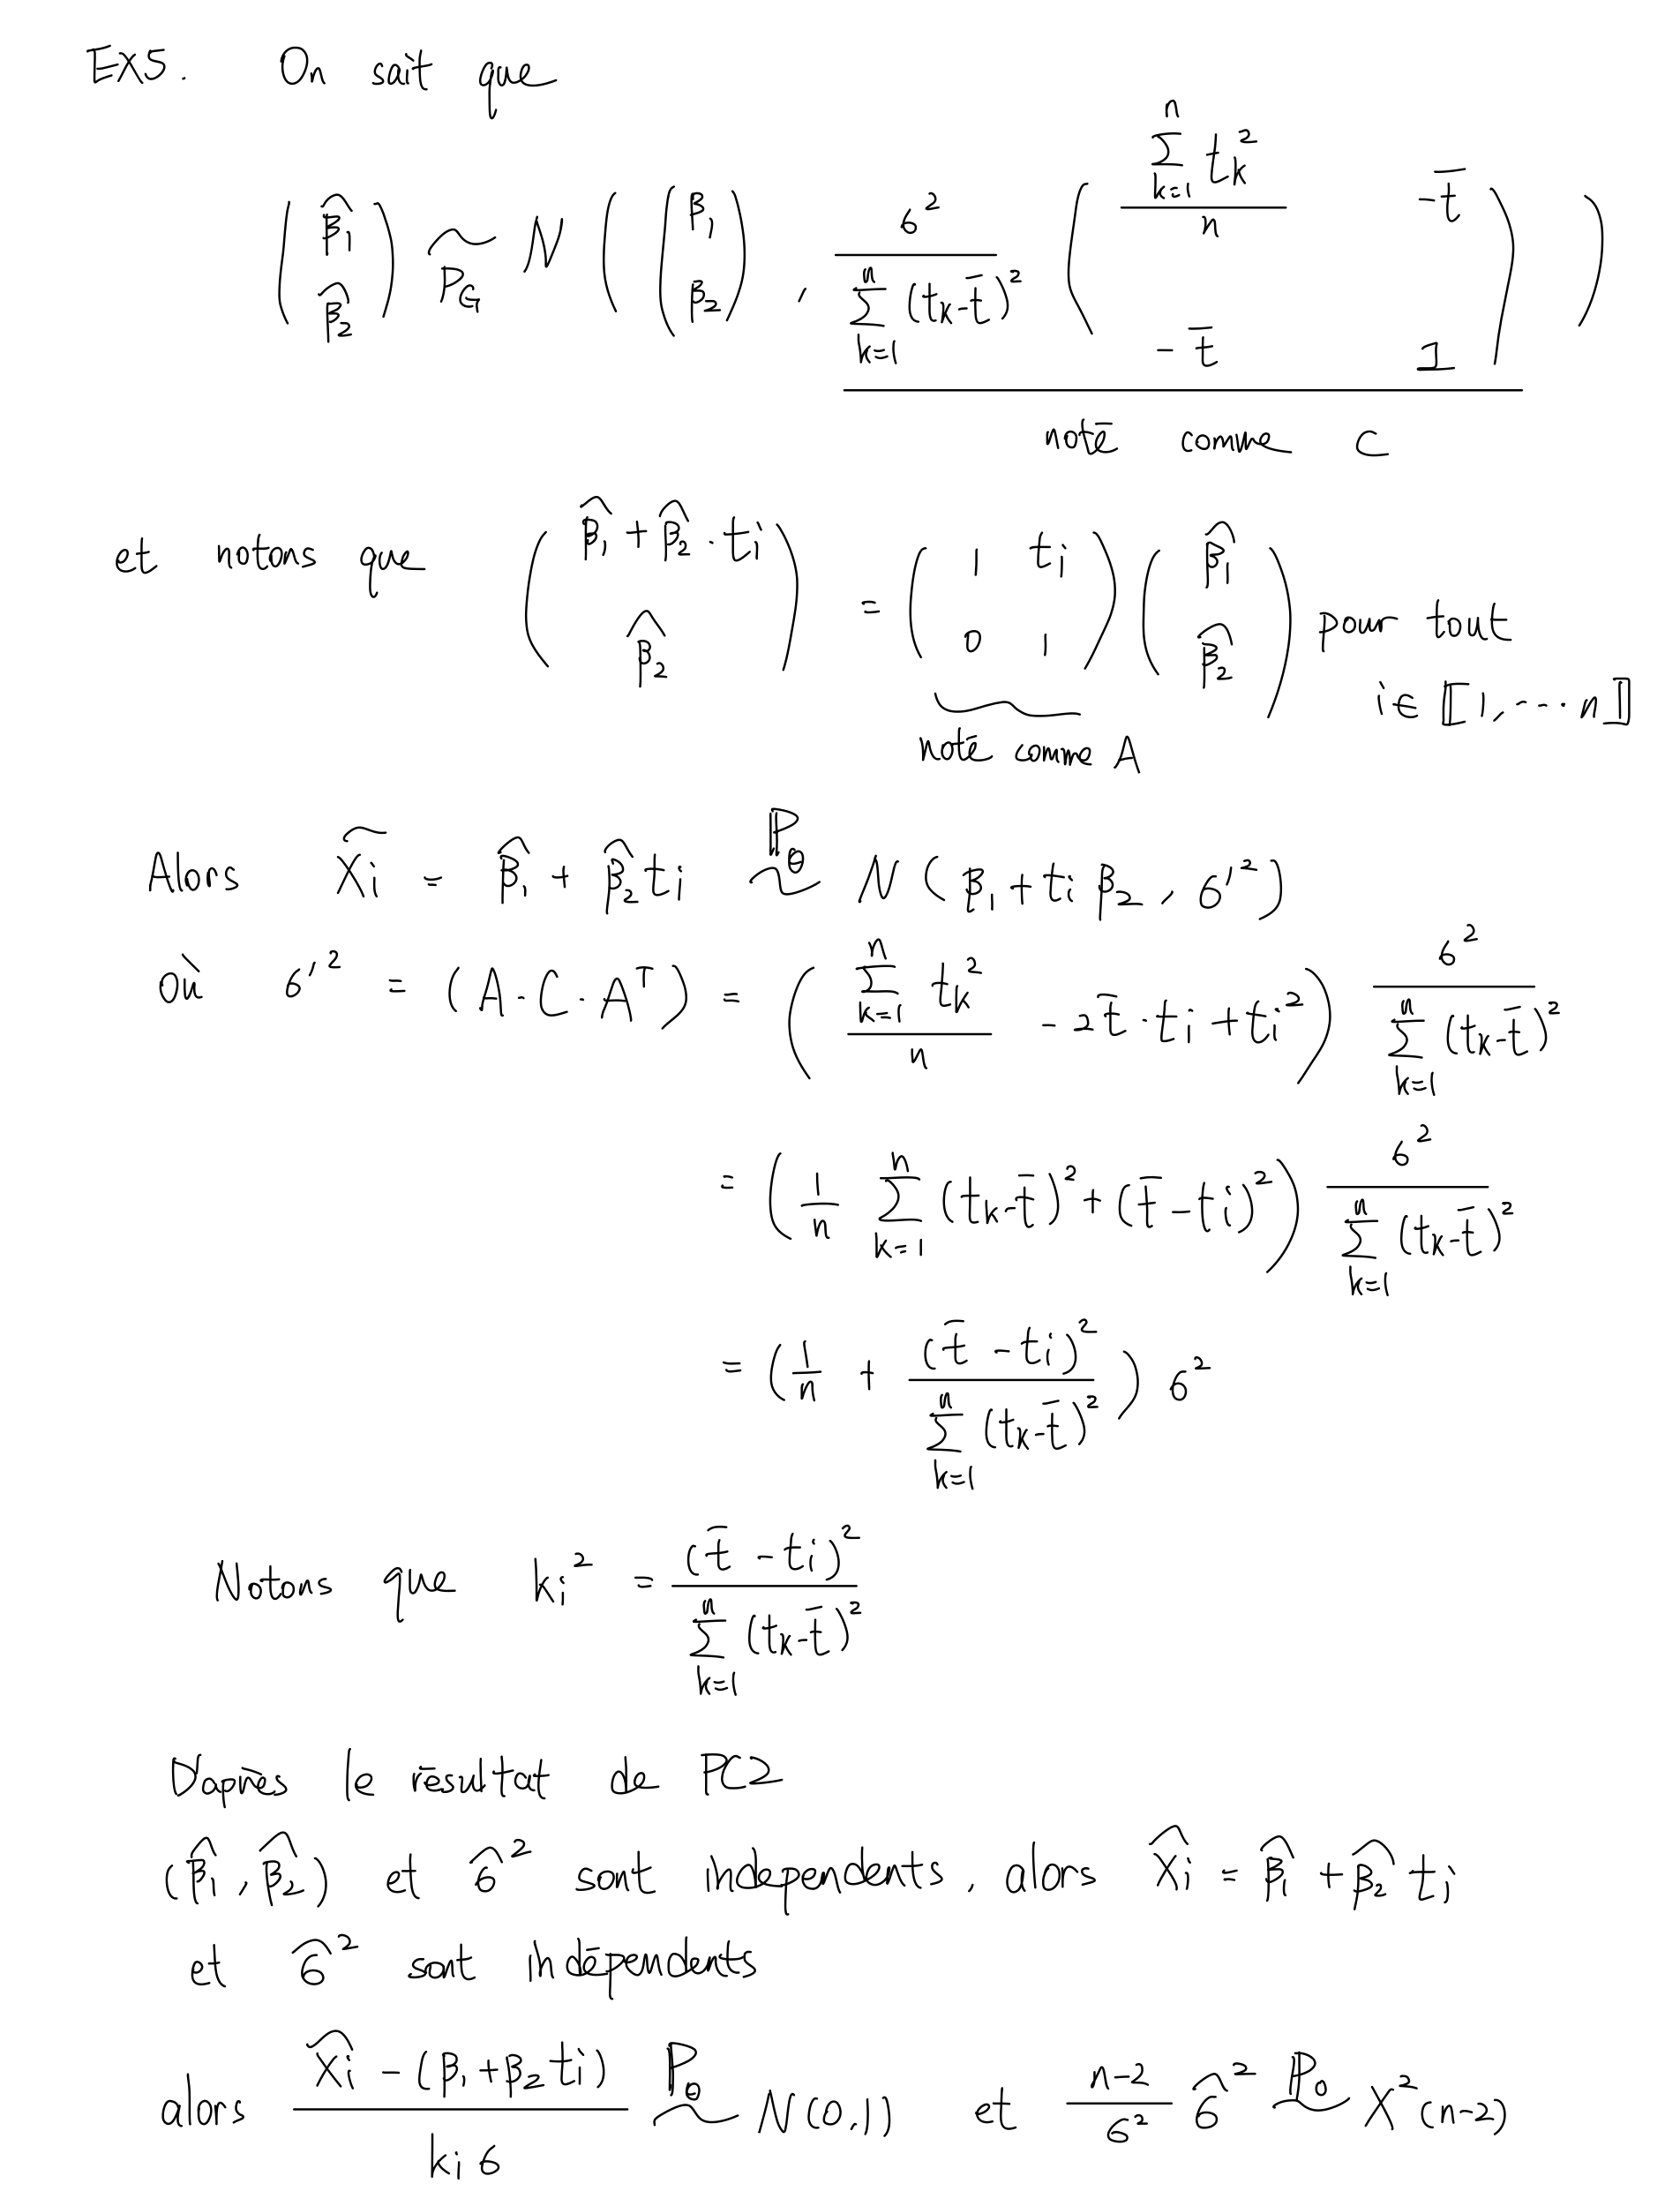 EX5. On sait que
$\begin{pmatrix} \widehat{\beta_1} \\ \widehat{\beta_2} \end{pmatrix} \underset{P_G}{\sim} N\left( \begin{pmatrix} \beta_1 \\ \beta_2 \end{pmatrix}, \underline{\frac{6^2}{\sum_{k=1}^{n}(t_k-\bar{t})^2} \begin{pmatrix} \frac{\sum_{k=1}^{n} t_k^2}{n} & -\bar{t} \\ -\bar{t} & 1 \end{pmatrix}} \right)$
noté comme C
et notons que $\begin{pmatrix} \widehat{\beta_1}+\widehat{\beta_2}\cdot t_i \\ \widehat{\beta_2} \end{pmatrix} = \begin{pmatrix} 1 & t_i \\ 0 & 1 \end{pmatrix} \begin{pmatrix} \widehat{\beta_1} \\ \widehat{\beta_2} \end{pmatrix}$ pour tout
i ∈ ⟦1, ... n⟧
noté comme A
Alors $\widetilde{X_i} = \widehat{\beta_1} + \widehat{\beta_2} t_i \overset{P_\theta}{\sim} N(\beta_1 + t_i \beta_2, 6'^2)$
où $6'^2 = (A \cdot C \cdot A^T) = \left( \frac{\sum_{k=1}^{n} t_k^2}{n} - 2\bar{t} \cdot t_i + t_i^2 \right) \frac{6^2}{\sum_{k=1}^{n}(t_k-\bar{t})^2}$
$= \left( \frac{1}{n} \sum_{k=1}^{n} (t_k-\bar{t})^2 + (\bar{t}-t_i)^2 \right) \frac{6^2}{\sum_{k=1}^{n}(t_k-\bar{t})^2}$
$= \left( \frac{1}{n} + \frac{(\bar{t}-t_i)^2}{\sum_{k=1}^{n}(t_k-\bar{t})^2} \right) 6^2$
Notons que $k_i^2 = \frac{(\bar{t}-t_i)^2}{\sum_{k=1}^{n}(t_k-\bar{t})^2}$
D'après le résultat de PC2
$(\widehat{\beta_1}, \widehat{\beta_2})$ et $\widehat{6}^2$ sont independents, alors $\widehat{X_i} = \widehat{\beta_1} + \widehat{\beta_2} t_i$
et $\widehat{6}^2$ sont indépendents
alors $\frac{\widehat{X_i} - (\beta_1 + \beta_2 t_i)}{k_i 6} \overset{P_\theta}{\sim} N(0,1)$ et $\frac{n-2}{6^2} \widehat{6}^2 \overset{P_\theta}{\sim} X^2(n-2)$